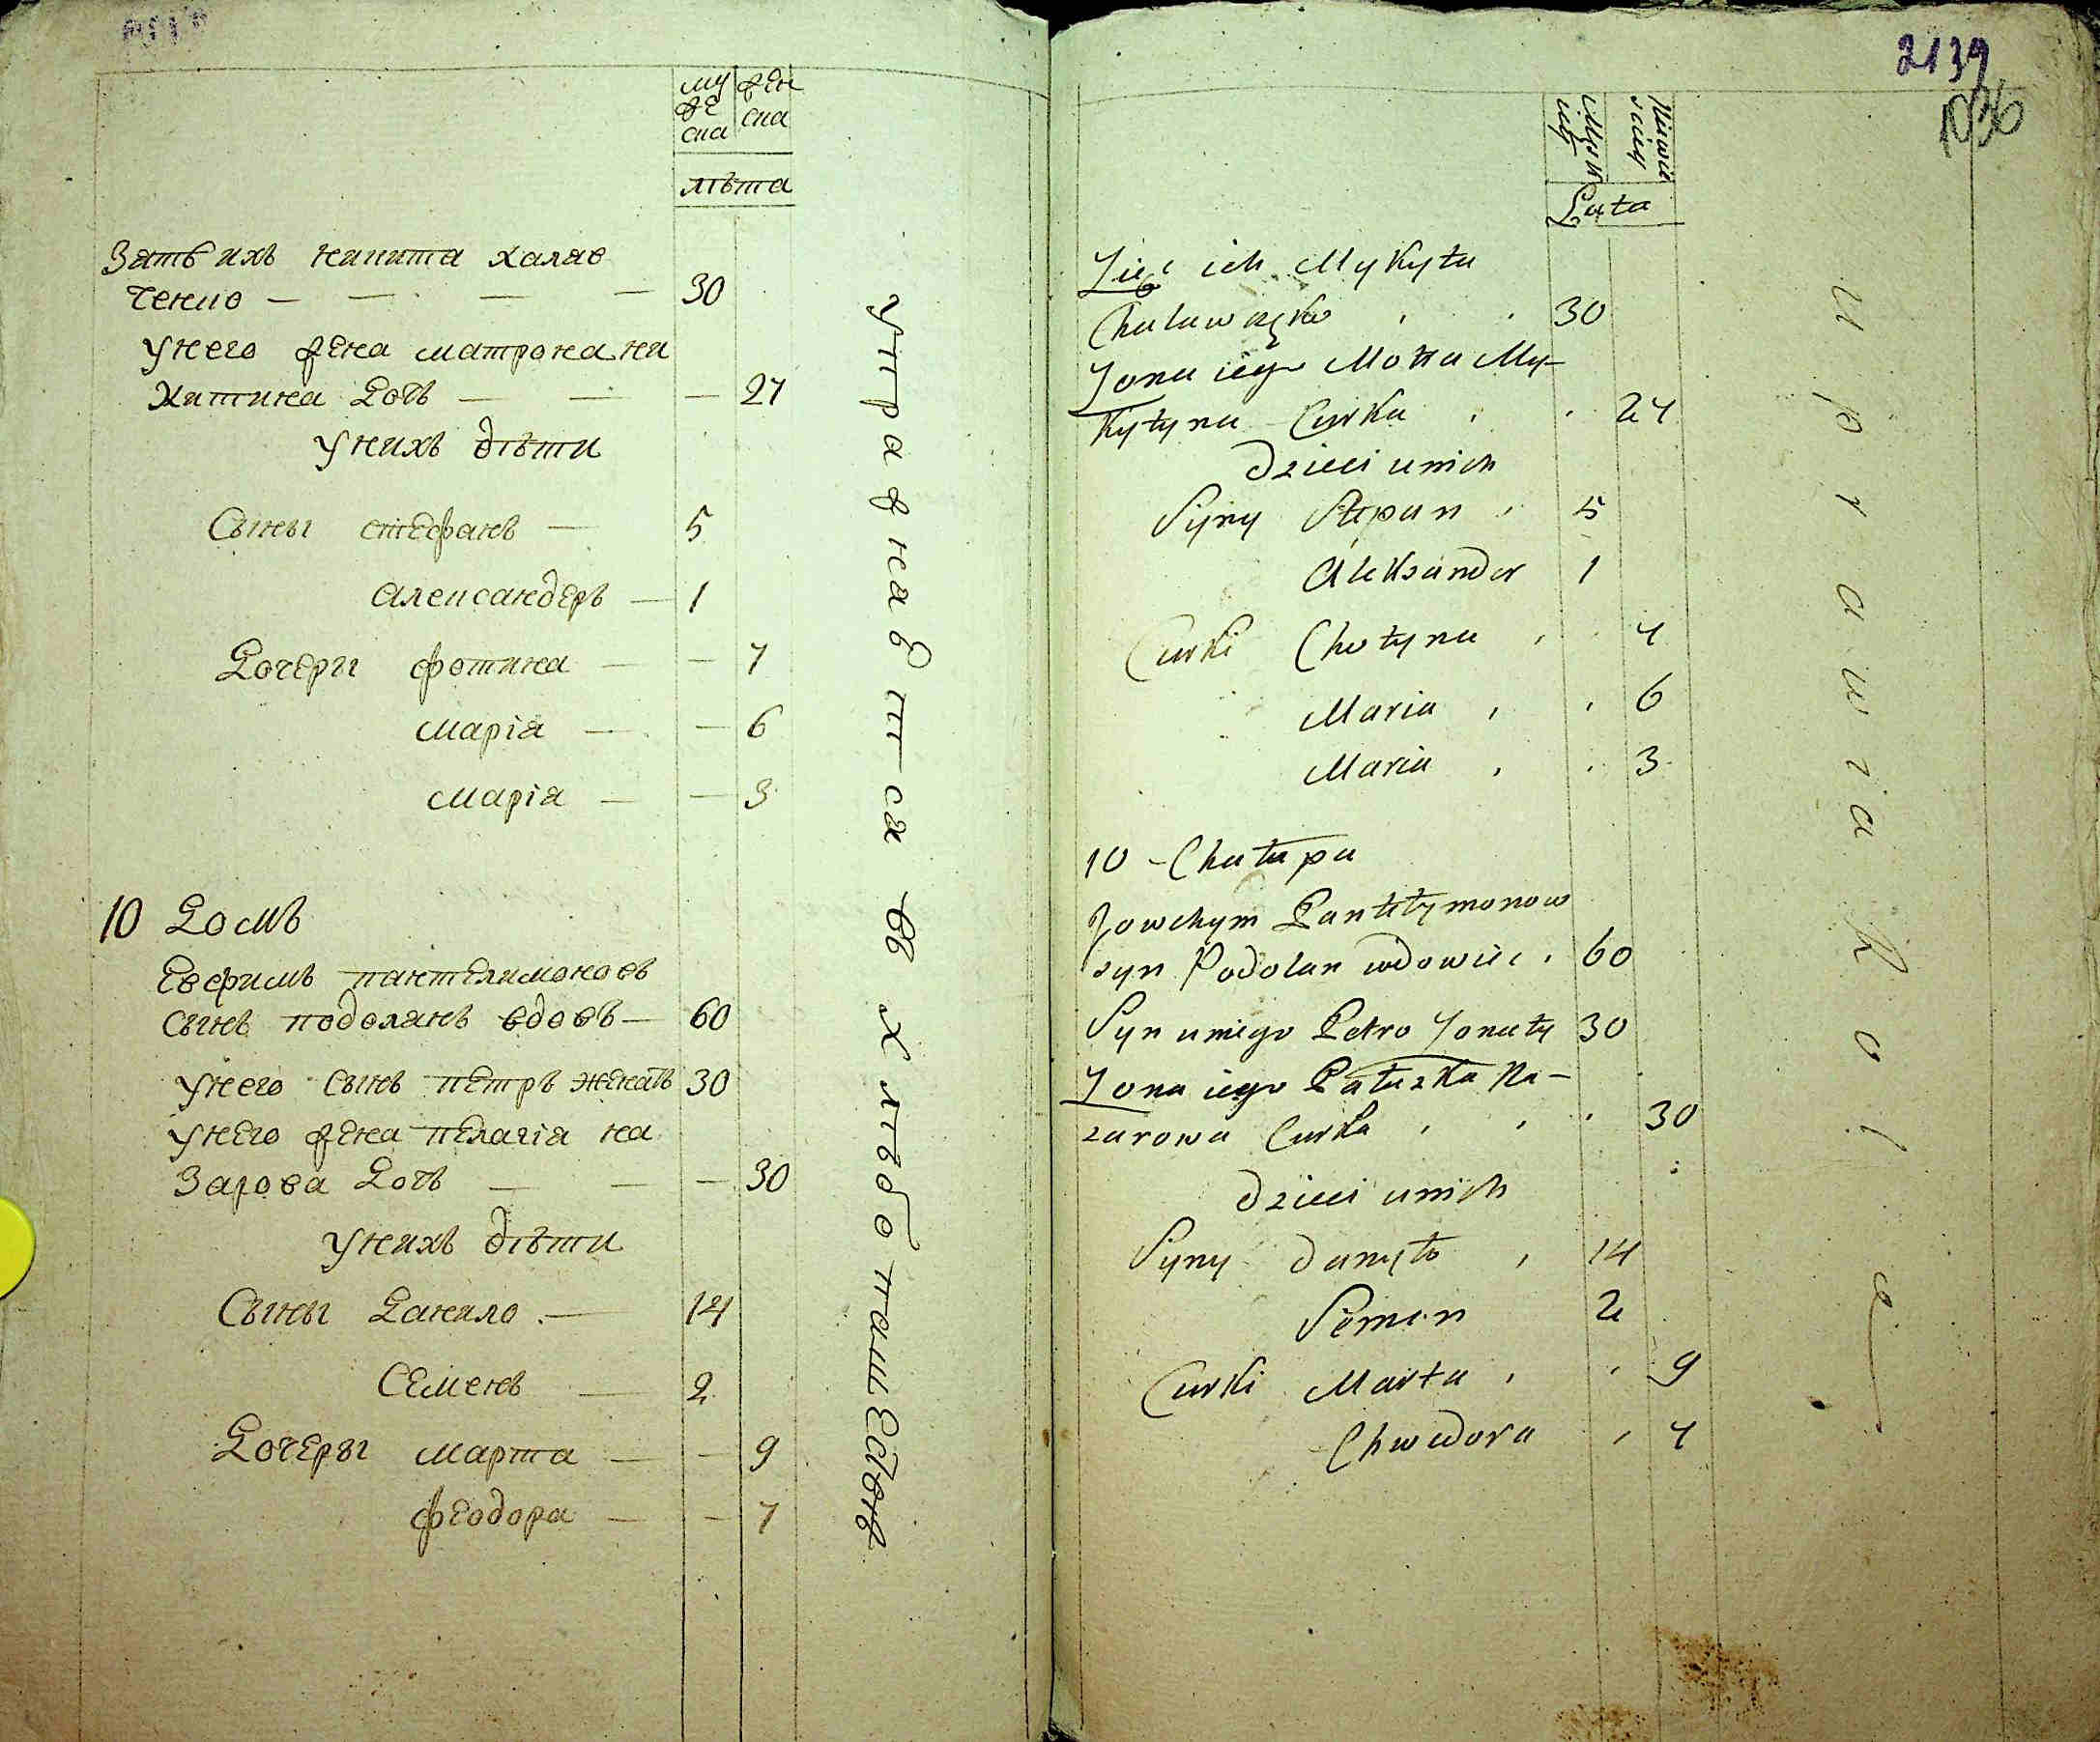 муже
ска
жен
ска
лѣта
Зять ихъ никита халяв
ченко — — — — 30
У него жена матрона ни
китина дочь — — — 27
У нихъ дѣти
Сыны стефанъ — 5
александеръ — 1
Дочери фотина — — 7
марія — — 6
марія — — 3
10 Домъ
Евфимъ пантелимоновъ
сынъ подолянъ вдовъ — 60
У него сынъ петръ женатъ 30
У него жена пелагія на
зарова дочь — — — 30
У нихъ дѣти
Сыны Данило — 14
Семенъ — 2
Дочери марта — — 9
феодора — — 7
упражнавтся въ хлѣбопашествѣ
2139
1036
Lata
Zięć ich Mykyta
Chalawczęko 30
Zona iego Motra My-
kytyna Curka 27
Dzieci u nich
Syny Stepan 5
Aleksander 1
Curki Chotyna 7
Maria 6
Maria 3
10 - Chałupa
Jowchym Pantełymonow
syn Podolan wdowiec 60
Syn u niego Petro Zonaty 30
Zona iego Pałazka Na-
zarowa Curka 30
Dzieci u nich
Syny Danyło 14
Semen 2
Curki Marta 9
Chwedora 7
uprawia Role